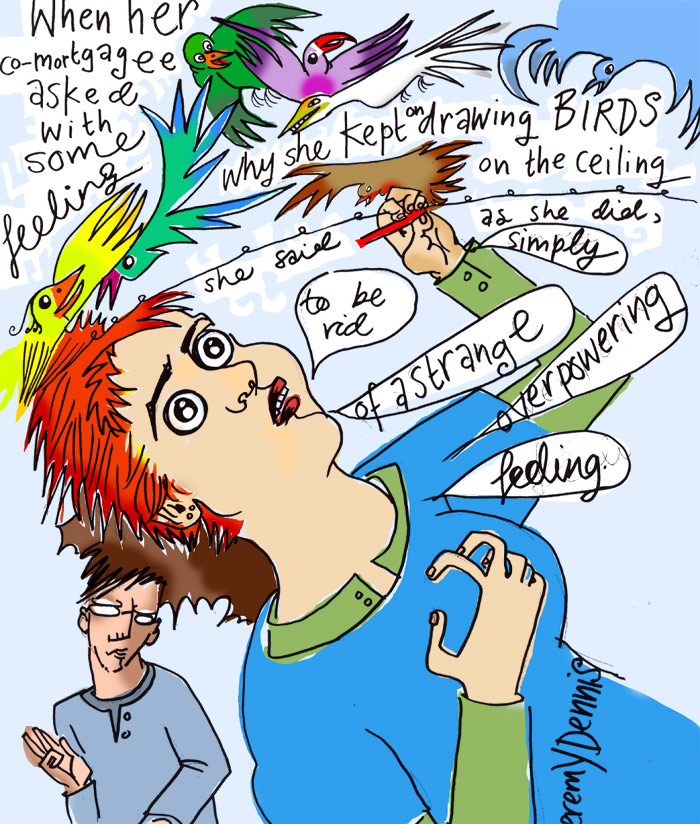 When her
co-mortgagee
asked
with
some
feeling
why she kept on drawing BIRDS
on the ceiling
she said
as she did,
simply
to be
rid
of a strange
overpowering
feeling.
JeremyDennis